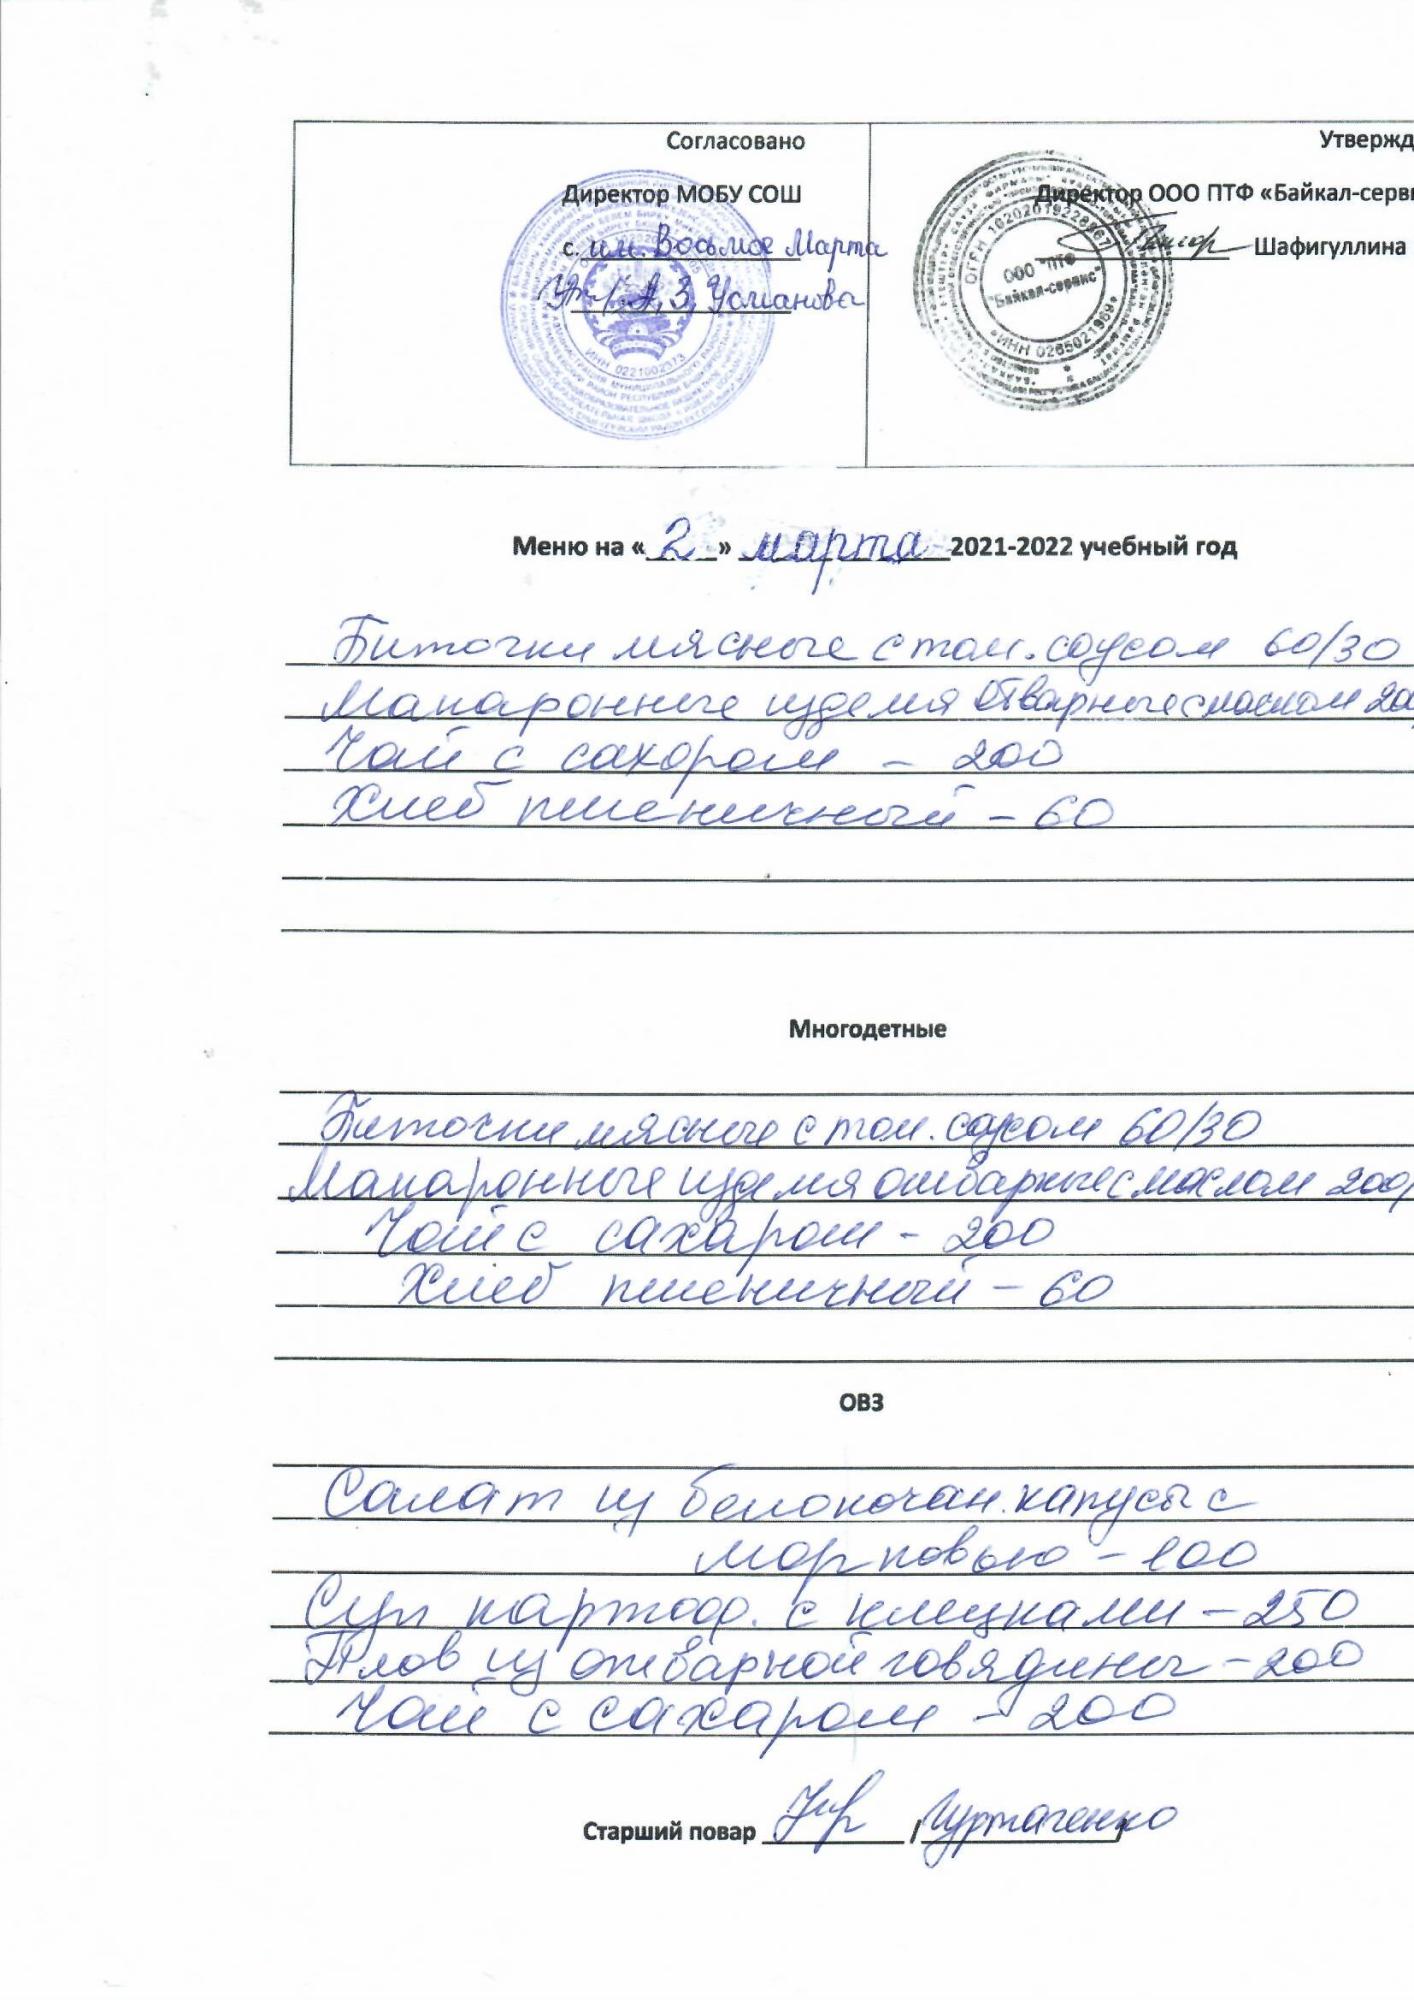 Согласовано
Директор МОБУ СОШ
с. им. Восьмое Марта
А.З. Усманова
ИНН 0221002373
Утвержд
Директор ООО ПТФ «Байкал-серви
Шафигуллина
ОГРН 1020201922886
ООО "ПТФ
"Байкал-сервис"
ИНН 0265021969
Меню на « 2 » марта 2021-2022 учебный год
Биточки мясные с том. соусом 60/30
Макаронные изделия отварные с маслом 200/
Чай с сахором - 200
Хлеб пшеничный - 60
Многодетные
Биточки мясные с том. соусом 60/30
Макаронные изделия отварные с маслом 200/
Чай с сахаром - 200
Хлеб пшеничный - 60
ОВЗ
Салат из белокочан. капусы с
морковью - 100
Суп картоф. с клецками - 250
Плов из отварной говядины - 200
Чай с сахаром - 200
Старший повар /